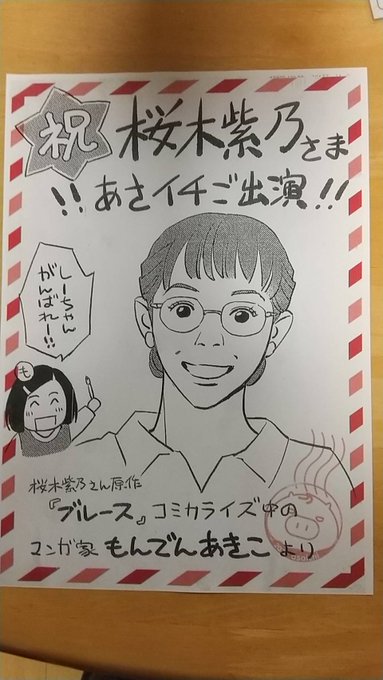 祝
桜木紫乃さま
!!あさイチご出演!!
しーちゃん
がんばれー!!
も
桜木紫乃さん原作
『ブルース』コミカライズ中の
マンガ家もんでんあきこより